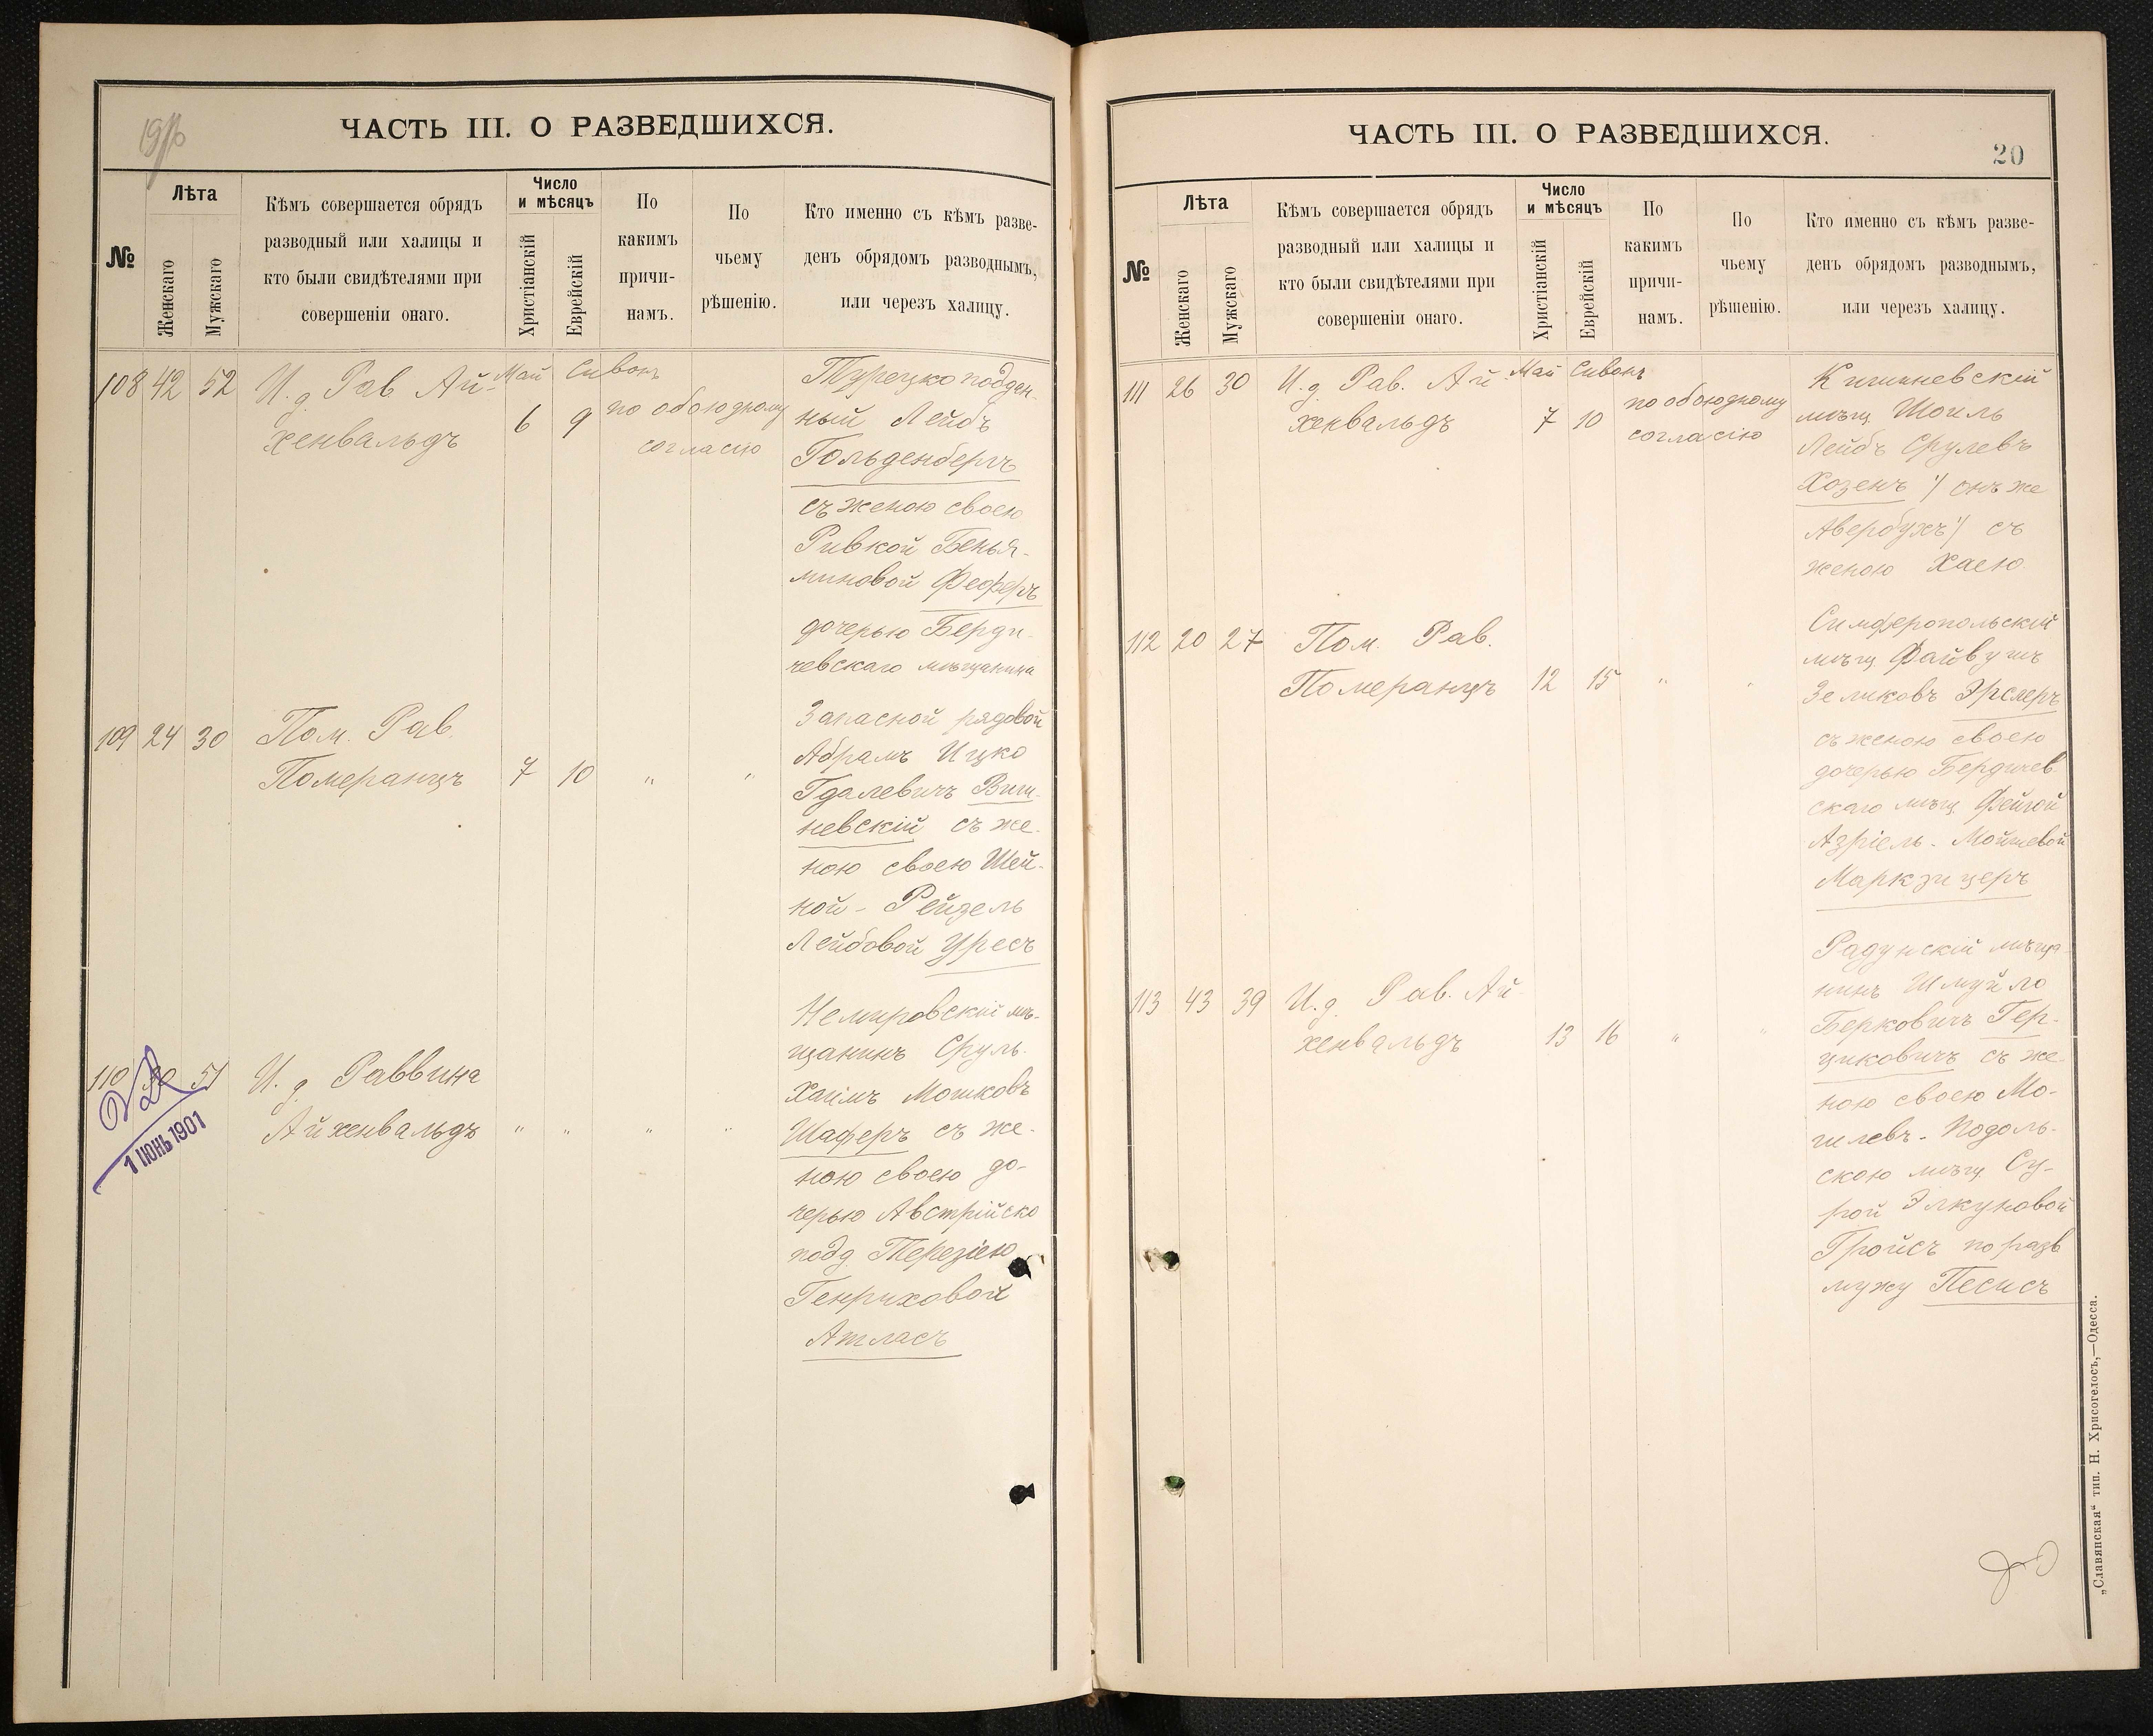 ЧАСТЬ III. О РАЗВЕДШИХСЯ.
№
Лѣта
Женскаго
Мужскаго
Кѣмъ совершается обрядъ
разводный или халицы и
кто были свидѣтелями при
совершеніи онаго.
Число
и мѣсяцъ
Христіанскій
Еврейскій
По
какимъ
причи-
намъ.
По
чьему
рѣшенію.
Кто именно съ кѣмъ разве-
денъ обрядомъ разводнымъ,
или черезъ халицу.
108 42 52
И. д. Рав Ай-
хенвальдъ
Май Сивонъ
6 9
по обоюдному
согласію
Турецко поддан-
ный Лейбъ
Гольденбергъ
съ женою своею
Ривкой Бенья-
миновой Феферъ
дочерью Берди-
чевскаго мѣщанина
109 24 30
Пом. Рав.
Померанцъ
7 10 " "
Запасной рядовой
Абрамъ Ицко
Гдалевичъ Виш-
невскій съ же-
ною своею Шей-
ной - Рейзель
Лейбовой Уресъ
110 30 51
И. д. Раввина
Айхенвальдъ
" " " "
Немировскій мѣ-
щанинъ Сруль-
Хаимъ Мошковъ
Шаферъ съ же-
ною своею до-
черью Австрійско
подд. Терезіею
Генриховой
Атласъ
1 ІЮНЬ 1901
ЧАСТЬ III. О РАЗВЕДШИХСЯ.
20
№
Лѣта
Женскаго
Мужскаго
Кѣмъ совершается обрядъ
разводный или халицы и
кто были свидѣтелями при
совершеніи онаго.
Число
и мѣсяцъ
Христіанскій
Еврейскій
По
какимъ
причи-
намъ.
По
чьему
рѣшенію.
Кто именно съ кѣмъ разве-
денъ обрядомъ разводнымъ,
или черезъ халицу.
111 26 30
И. д. Рав. Ай-
хенвальдъ
Май Сивонъ
7 10
по обоюдному
согласію
Кишиневскій
мѣщ. Шоиль
Лейбъ Срулевъ
Хозенъ /онъ же
Авербухъ/ съ
женою Хаею
112 20 27
Пом. Рав.
Померанцъ
12 15 " "
Симферопольскій
мѣщ. Файвушъ
Зеликовъ Эрслеръ
съ женою своею
дочерью Бердичев
скаго мѣщ. Фейгой
Азріель - Мойшевой
Маркзицеръ
113 43 39
И. д. Рав. Ай-
хенвальдъ
13 16 " "
Радунскій мѣща-
нинъ Шмуйло
Берковичъ Гер-
циковичъ съ же-
ною своею Мо-
гилевъ - Подоль-
скою мѣщ. Су-
рой Элкуновой
Гройсъ по разв
мужу Песисъ
„Славянская“ тип. Н. Хрисогелосъ,—Одесса.